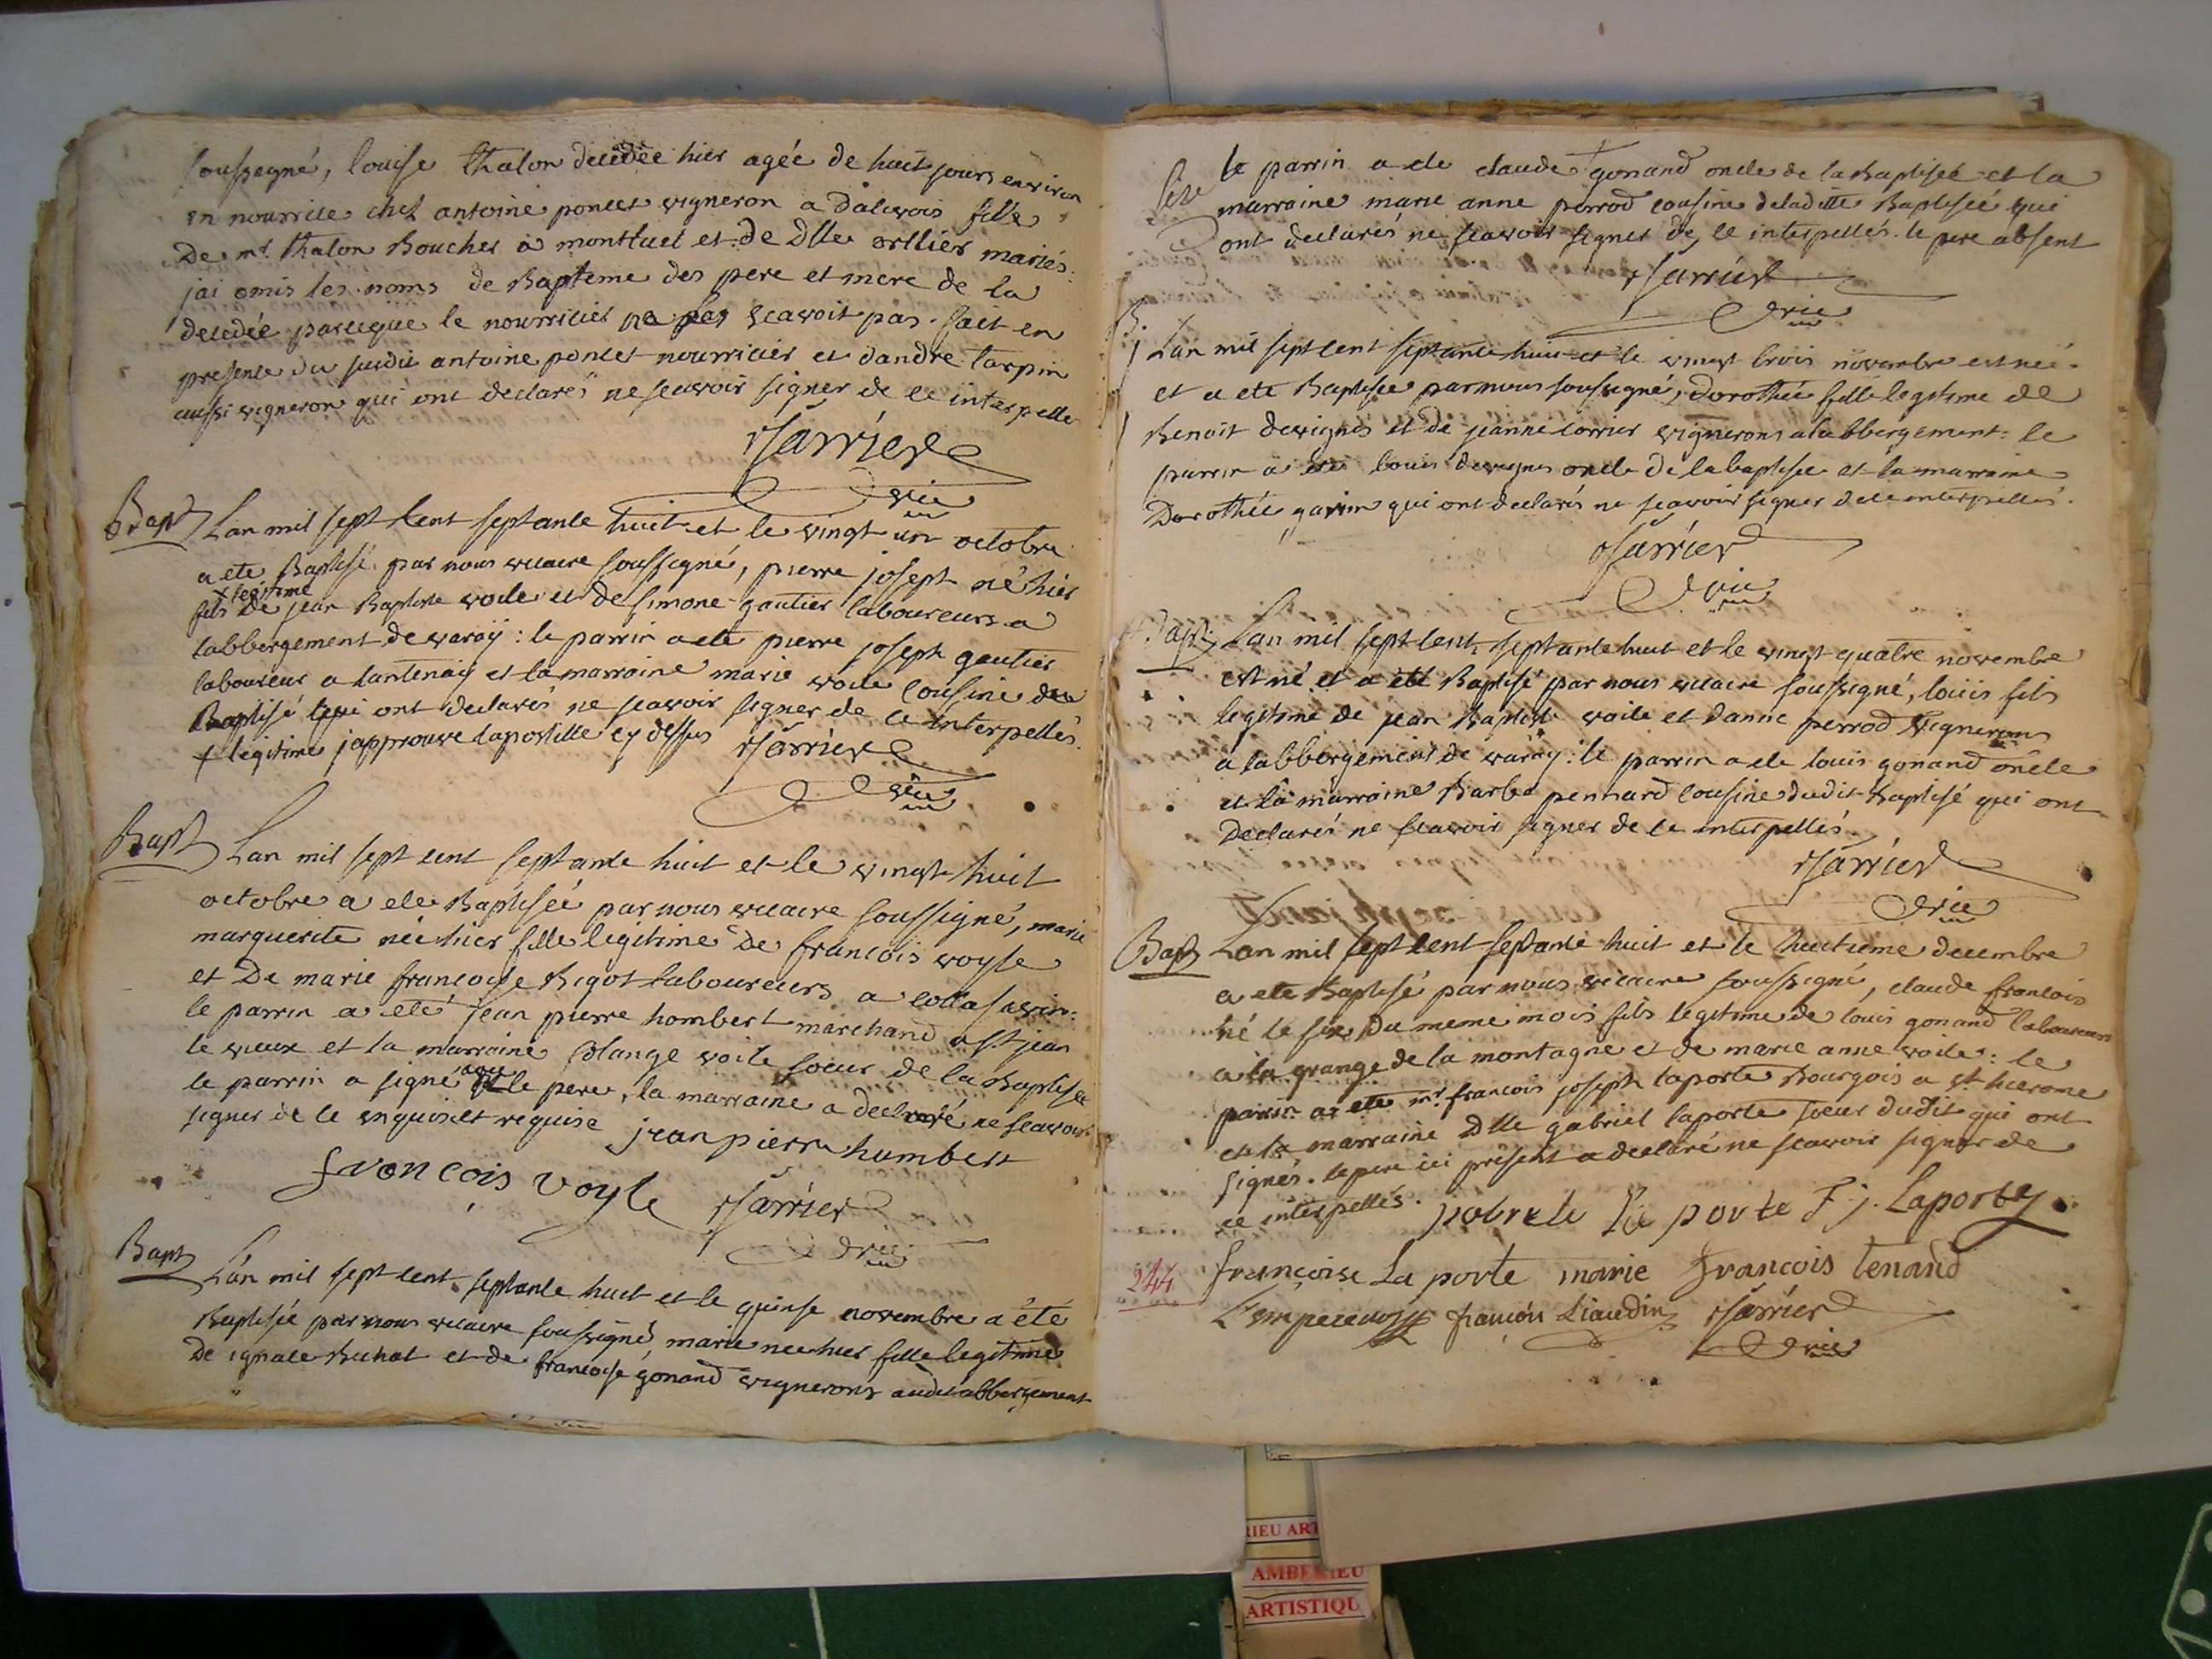 soussigné, louise thalon decedée hier agée de huit jours environ
en nourrice chez antoine poncet vigneron a dalivois fille
De mr. thalon Boucher a montluel et de Dlle orllier mariés.
jai omis les noms de Bapteme des pere et mere de la
decedée parceque le nourricier ne les scavoit pas. fait en
presence du susdit antoine poncet nourricier et dandré tarpin
aussi vigneron qui ont declarés ne scavoir signer de ce interpellé
Sarrier
vic
Bapt Lan mil sept cent septante huit et le vingt un octobre
a ete Baptisé par nous vicaire soussigné, pierre joseph né hier
x legitime
fils de jean Baptiste voile et de simone gautier laboureurs a
labbergement de varay : le parrin a ete pierre joseph gautier
laboureur a lantenay et la marraine marie voile cousine du
Baptisé qui ont declarés ne scavoir signer de ce interpellés.
x legitime japprouve lapostille cy dessus Sarrier
vic
Bapt Lan mil sept cent septante huit et le vingt huit
octobre a ete Baptisée par nous vicaire soussigné, marie
marguerite née hier fille legitime de francois voyle
et De marie francoise Bigot laboureurs a cotta savin.
le parrin a eté jean pierre hombert marchand a st jean
le vieux et la marraine Solange voile soeur de la Baptisée
le parrin a signé avec le pere, la marraine a declaré ne scavoir
signer de ce enquise et requise jean pierre humbert
francois voyle Sarrier
vic
Bapt Lan mil sept cent septante huit et le quinse novembre a été
Baptisée par nous vicaire soussigné, marie née hier fille legitime
De ignace Buhot et de francoise gonand vignerons audit abbergement
le parrin a ete claude gonand oncle de la Baptisée et la
marraine marie anne perrod cousine deladitte Baptisée qui
ont declarés ne scavoir signer de ce interpellés. le pere absent
Sarrier
vic
B. Lan mil sept cent septante huit et le vingt trois novembre est née
et a ete Baptisée par nous soussigné, Dorothée fille legitime de
Benoit devignes et de jeanne corrier vignerons a labbergement : le
parrin a été louis devignes oncle de la baptisée et la marraine
Dorothée garin qui ont declarés ne scavoir signer de ce interpellés.
Sarrier
vic
Bapt Lan mil sept cent septante huit et le vingt quatre novembre
est né et a été Baptisé par nous vicaire soussigné, louis fils
legitime de jean Baptiste voile et danne perrod vignerons
a labbergement de varay : le parrin a ete louis gonand oncle
et la marraine Barbe pennard cousine dudit Baptisé qui ont
Declarés ne scavoir signer de ce interpellés.
Sarrier
vic
Bapt Lan mil sept cent septante huit et le huitieme decembre
a ete Baptisé par nous vicaire soussigné, claude francois
né le six du meme mois fils legitime de louis gonand laboureur
a la grange de la montagne et de marie anne voile : le
parrin a ete mr. francois joseph laporte Bourgois a st hierome
et la marraine Dlle gabriel laporte soeur dudit qui ont
signés. le pere ici present a declaré ne scavoir signer de
ce interpellés. La porte F. j. Laporte
244 françoise La porte marie francois tenand
Lempereur françois Liaudin Sarrier
vic
RIEU ART
AMBERIEU
ARTISTIQU